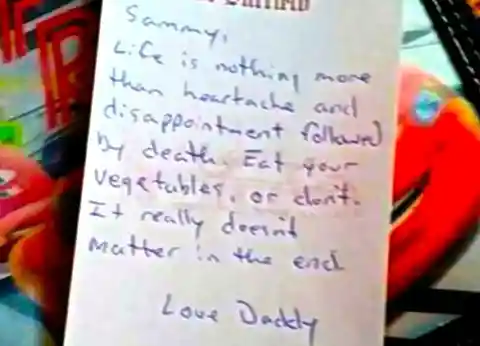 Sammy,
Life is nothing more
than heartache and
disappointment followed
by death. Eat your
vegetables, or don't.
It really doesn't
matter in the end
Love Daddy